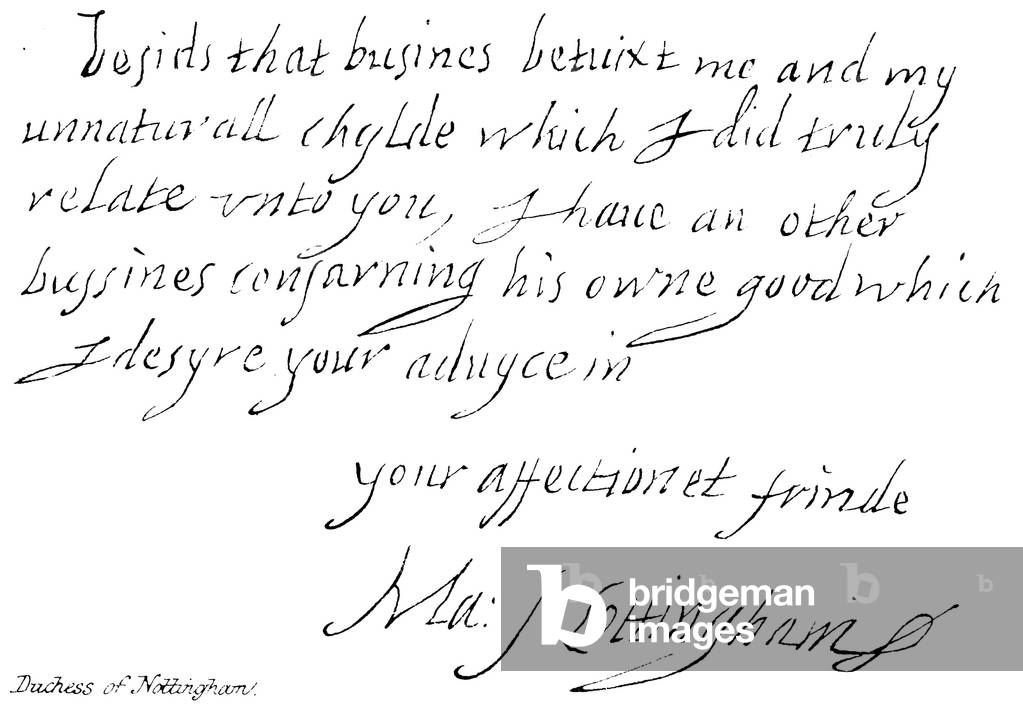 besids that busines betuixt me and my
unnaturall chylde which I did truly
relate vnto you, I haue an other
bussines consarning his owne good which
I desyre your aduyce in
your affectionet frinde
Ma: Nottingham
bridgeman
images
Duchess of Nottingham.